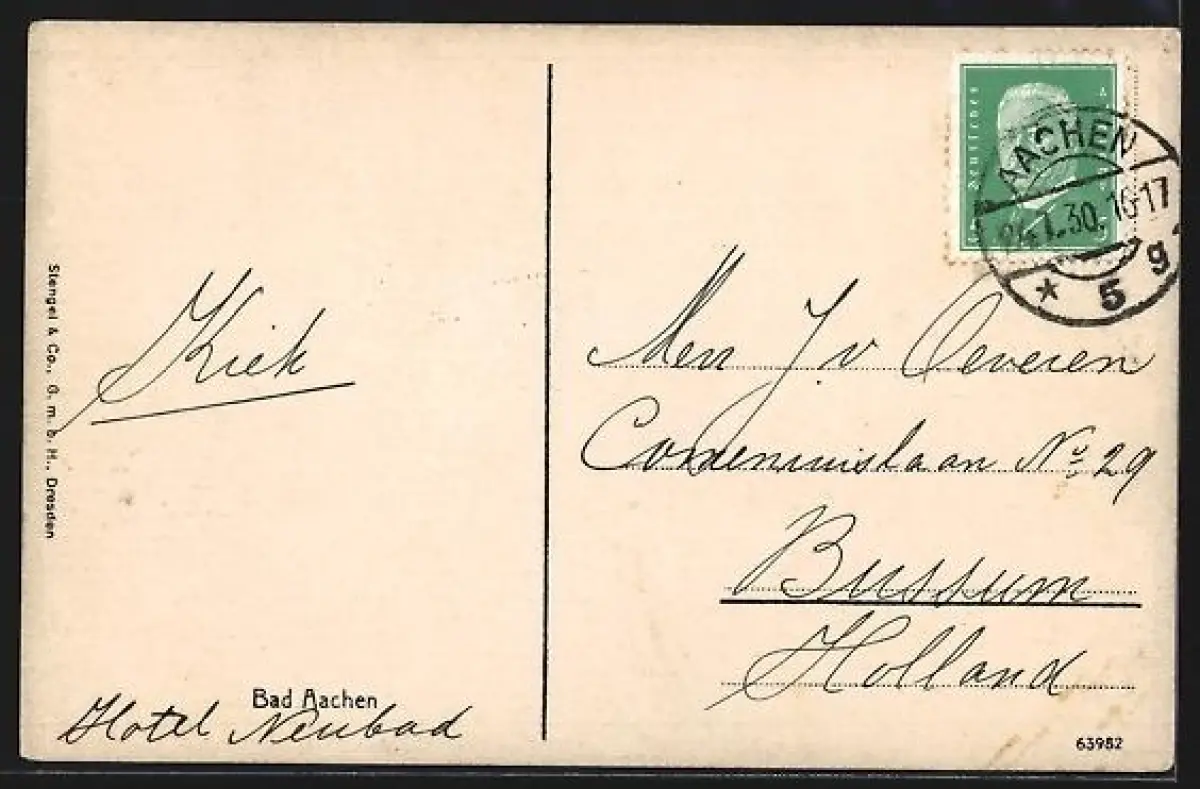 Kiek
Bad Aachen
Hotel Neubad
Stengel & Co., G. m. b. H., Dresden
Deutsches
AACHEN
1.30. 16-17
* 5 g
J. v Oeveren
No 29
Bussum
Holland
63982